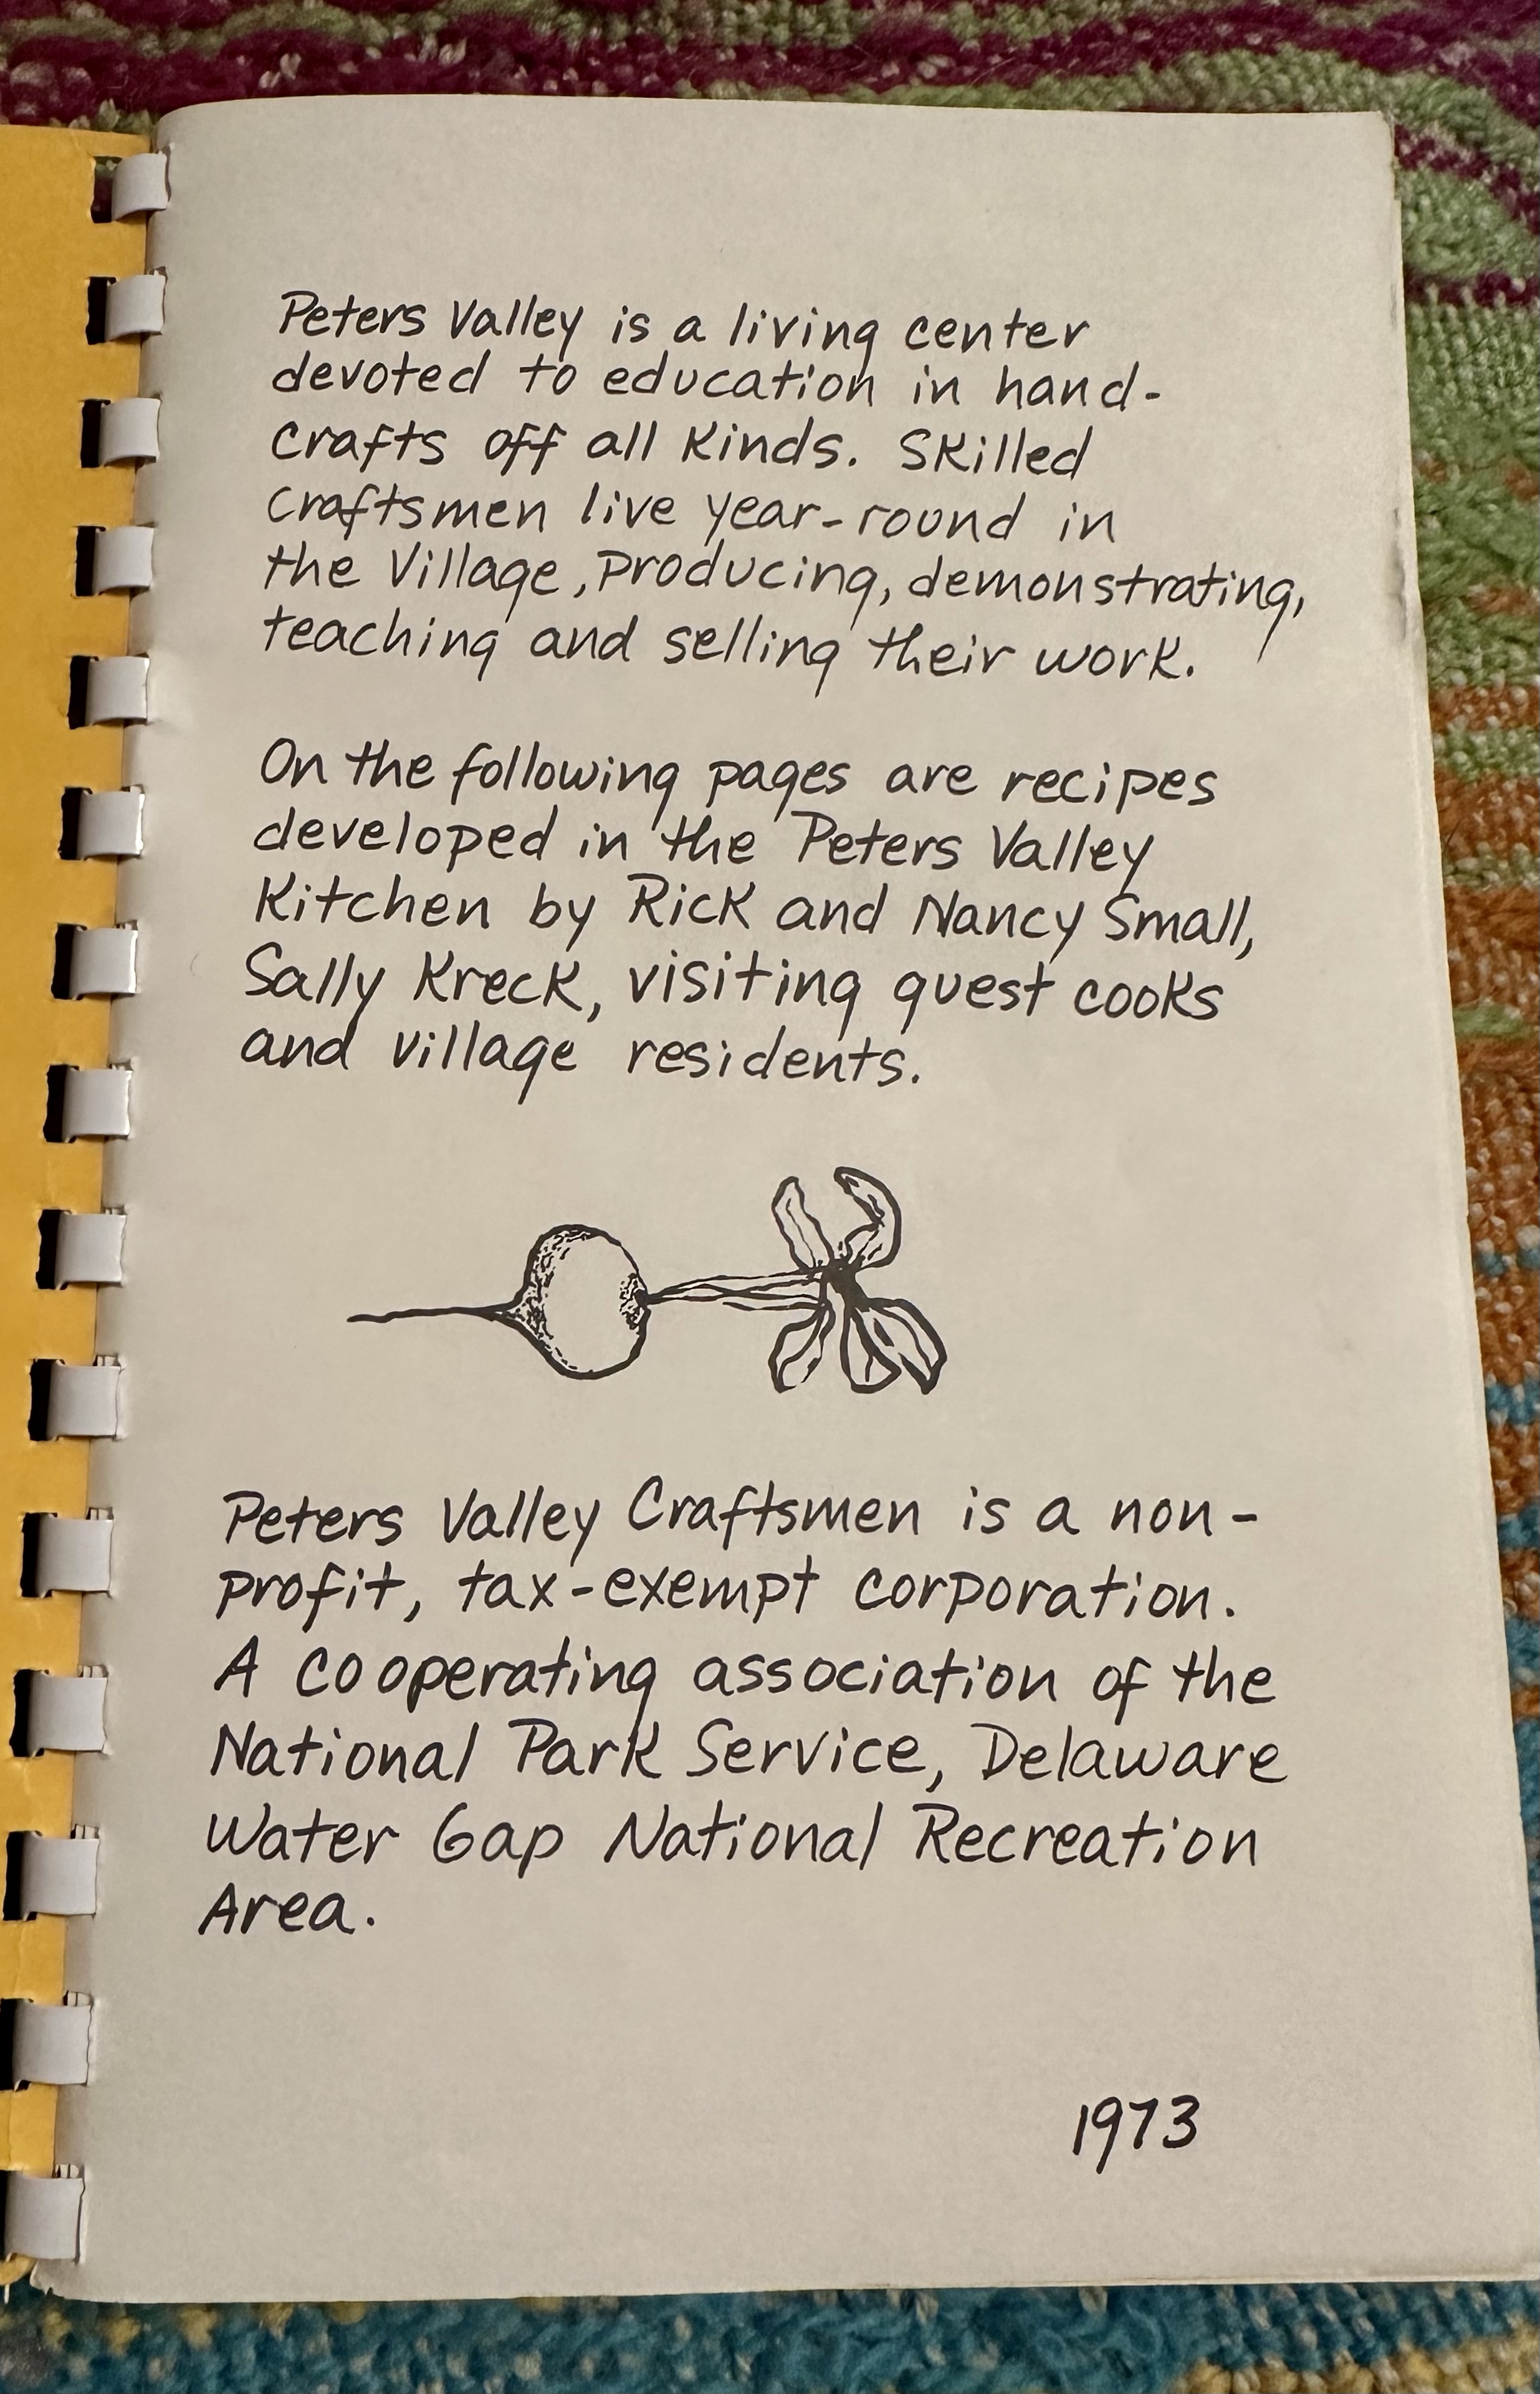 Peters Valley is a living center
devoted to education in hand-
crafts off all kinds. Skilled
craftsmen live year-round in
the Village, producing, demonstrating,
teaching and selling their work.
On the following pages are recipes
developed in the Peters Valley
Kitchen by Rick and Nancy Small,
Sally Kreck, visiting guest cooks
and village residents.
Peters Valley Craftsmen is a non-
profit, tax-exempt corporation.
A cooperating association of the
National Park Service, Delaware
Water Gap National Recreation
Area.
1973